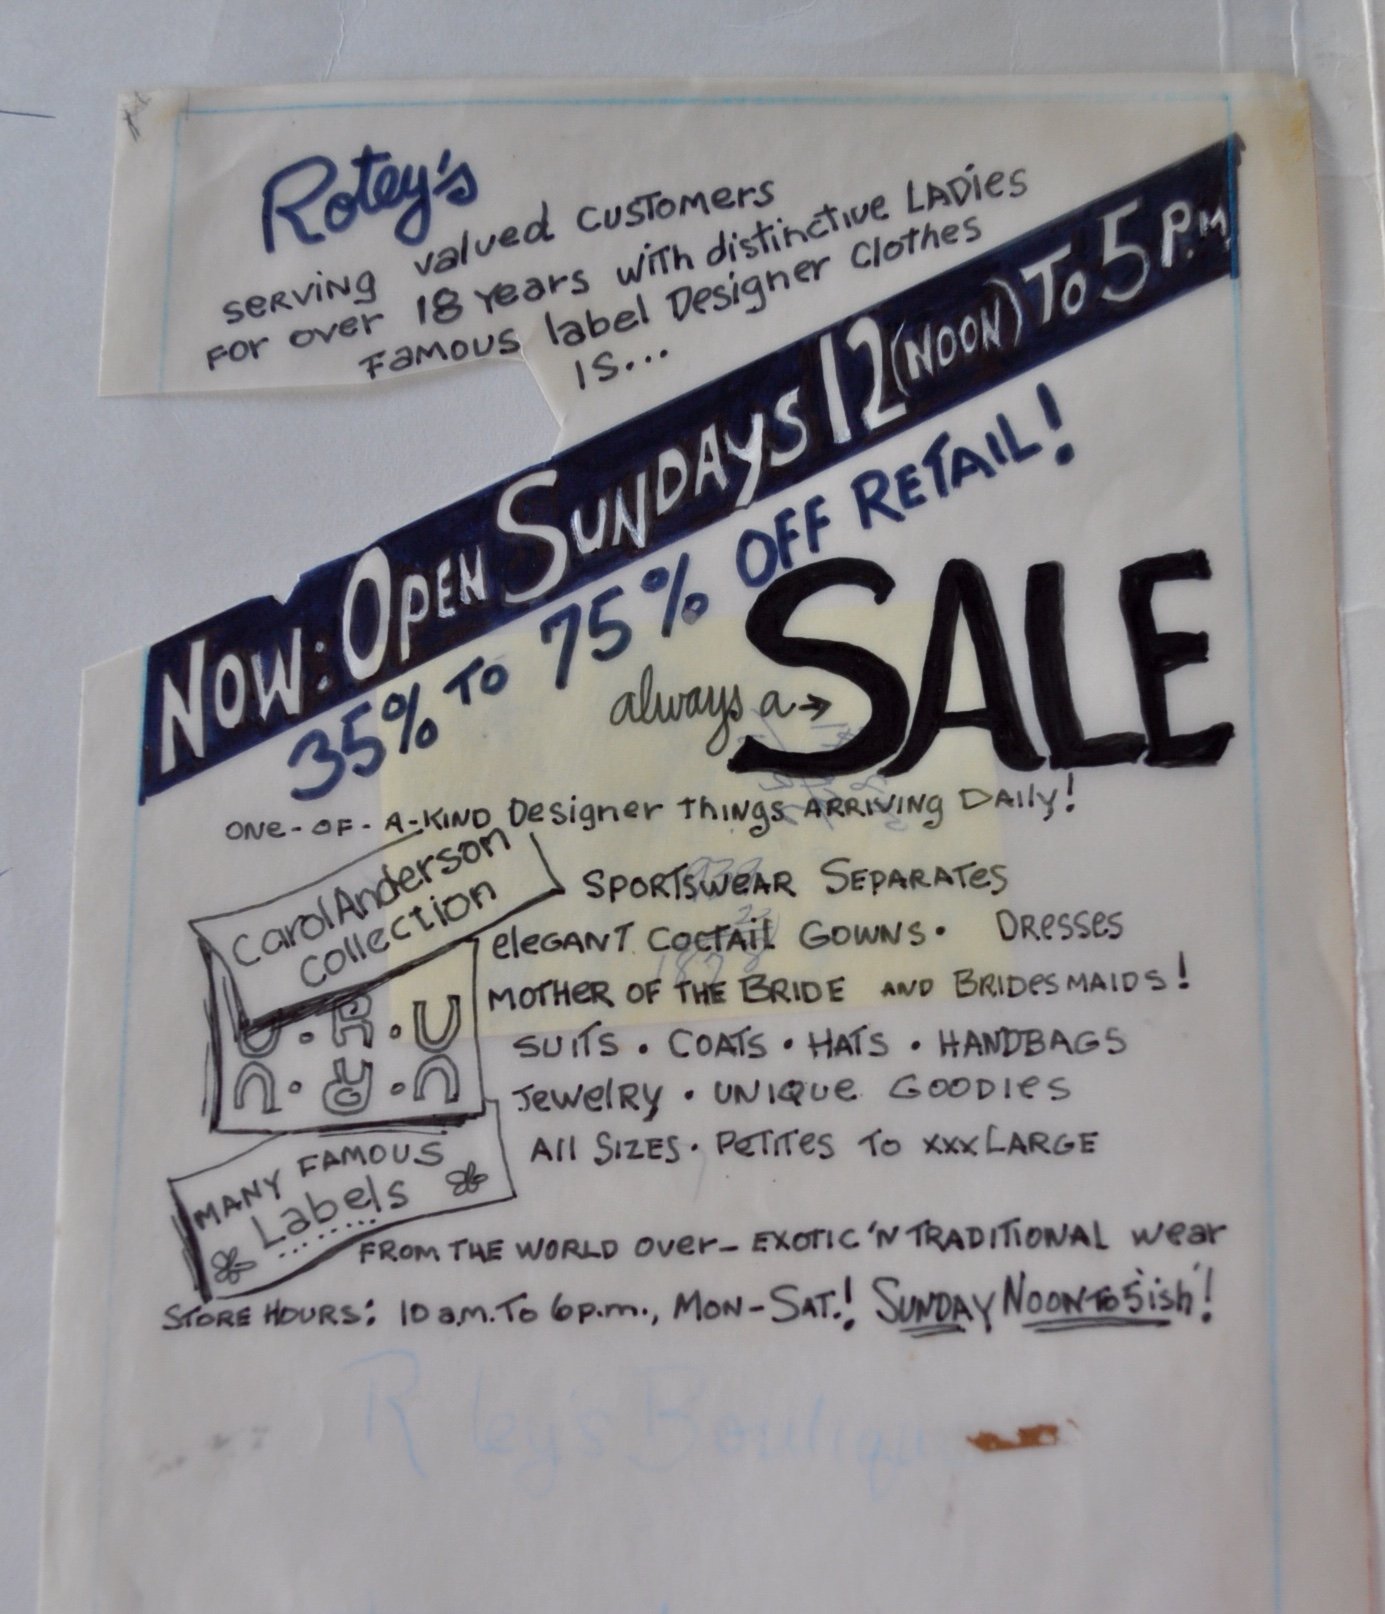 Rotey's
SERVING valued CUSTOMERS
FOR over 18 Years with distinctive LADies
FAMOUS label Designer Clothes
IS...
NOW: OPEN SUNDAYS 12 (NOON) TO 5 P.M
35% TO 75% OFF RETAIL!
always a → SALE
ONE-OF-A-KIND Designer THINGS ARRIVING DAILY!
Carol Anderson
Collection
U.R.U
MANY FAMOUS
Labels
SPORTSWEAR SEPARATES
eleGANT COCTAIL GOWNS. DRESSES
MOTHER OF THE BRIDE AND BRIDESMAIDS!
SUITS • COATS • HATS • HANDBAGS
JEWELRY • UNIQUE GOODIES
All SIZES • PETITES TO XXXLARGE
FROM THE WORLD OVER- EXOTIC 'N TRADITIONAL wear
STORE HOURS: 10 a.m. TO 6 p.m., MON-SAT.! SUNDAY NOON TO 5'ish'!